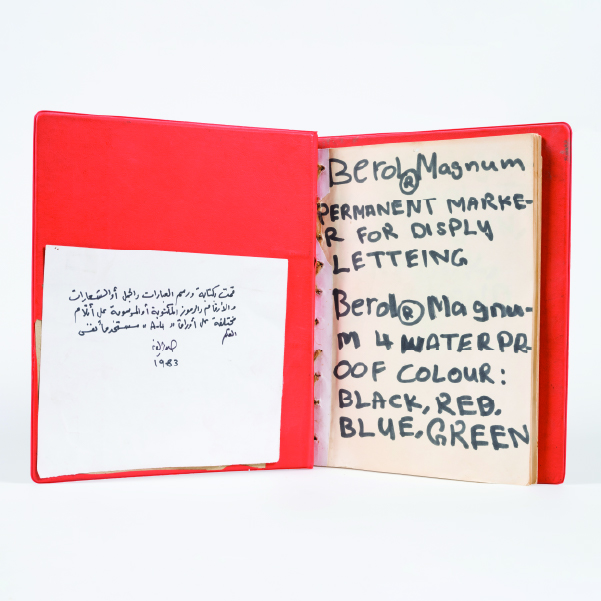 قمت بكتابة ورسم العبارات والجمل أو الشعارات
والأرقام والرموز المكتوبة أو المرسومة على أقلام
مختلفة على أوراق « A4 » مستخدماً نفس
القلم
1983
Berol ® Magnum
PERMANENT MARKE-
R FOR DISPLY
LETTEING
Berol ® Magnu-
M 4 WATERPR-
OOF COLOUR:
BLACK, RED,
BLUE, GREEN